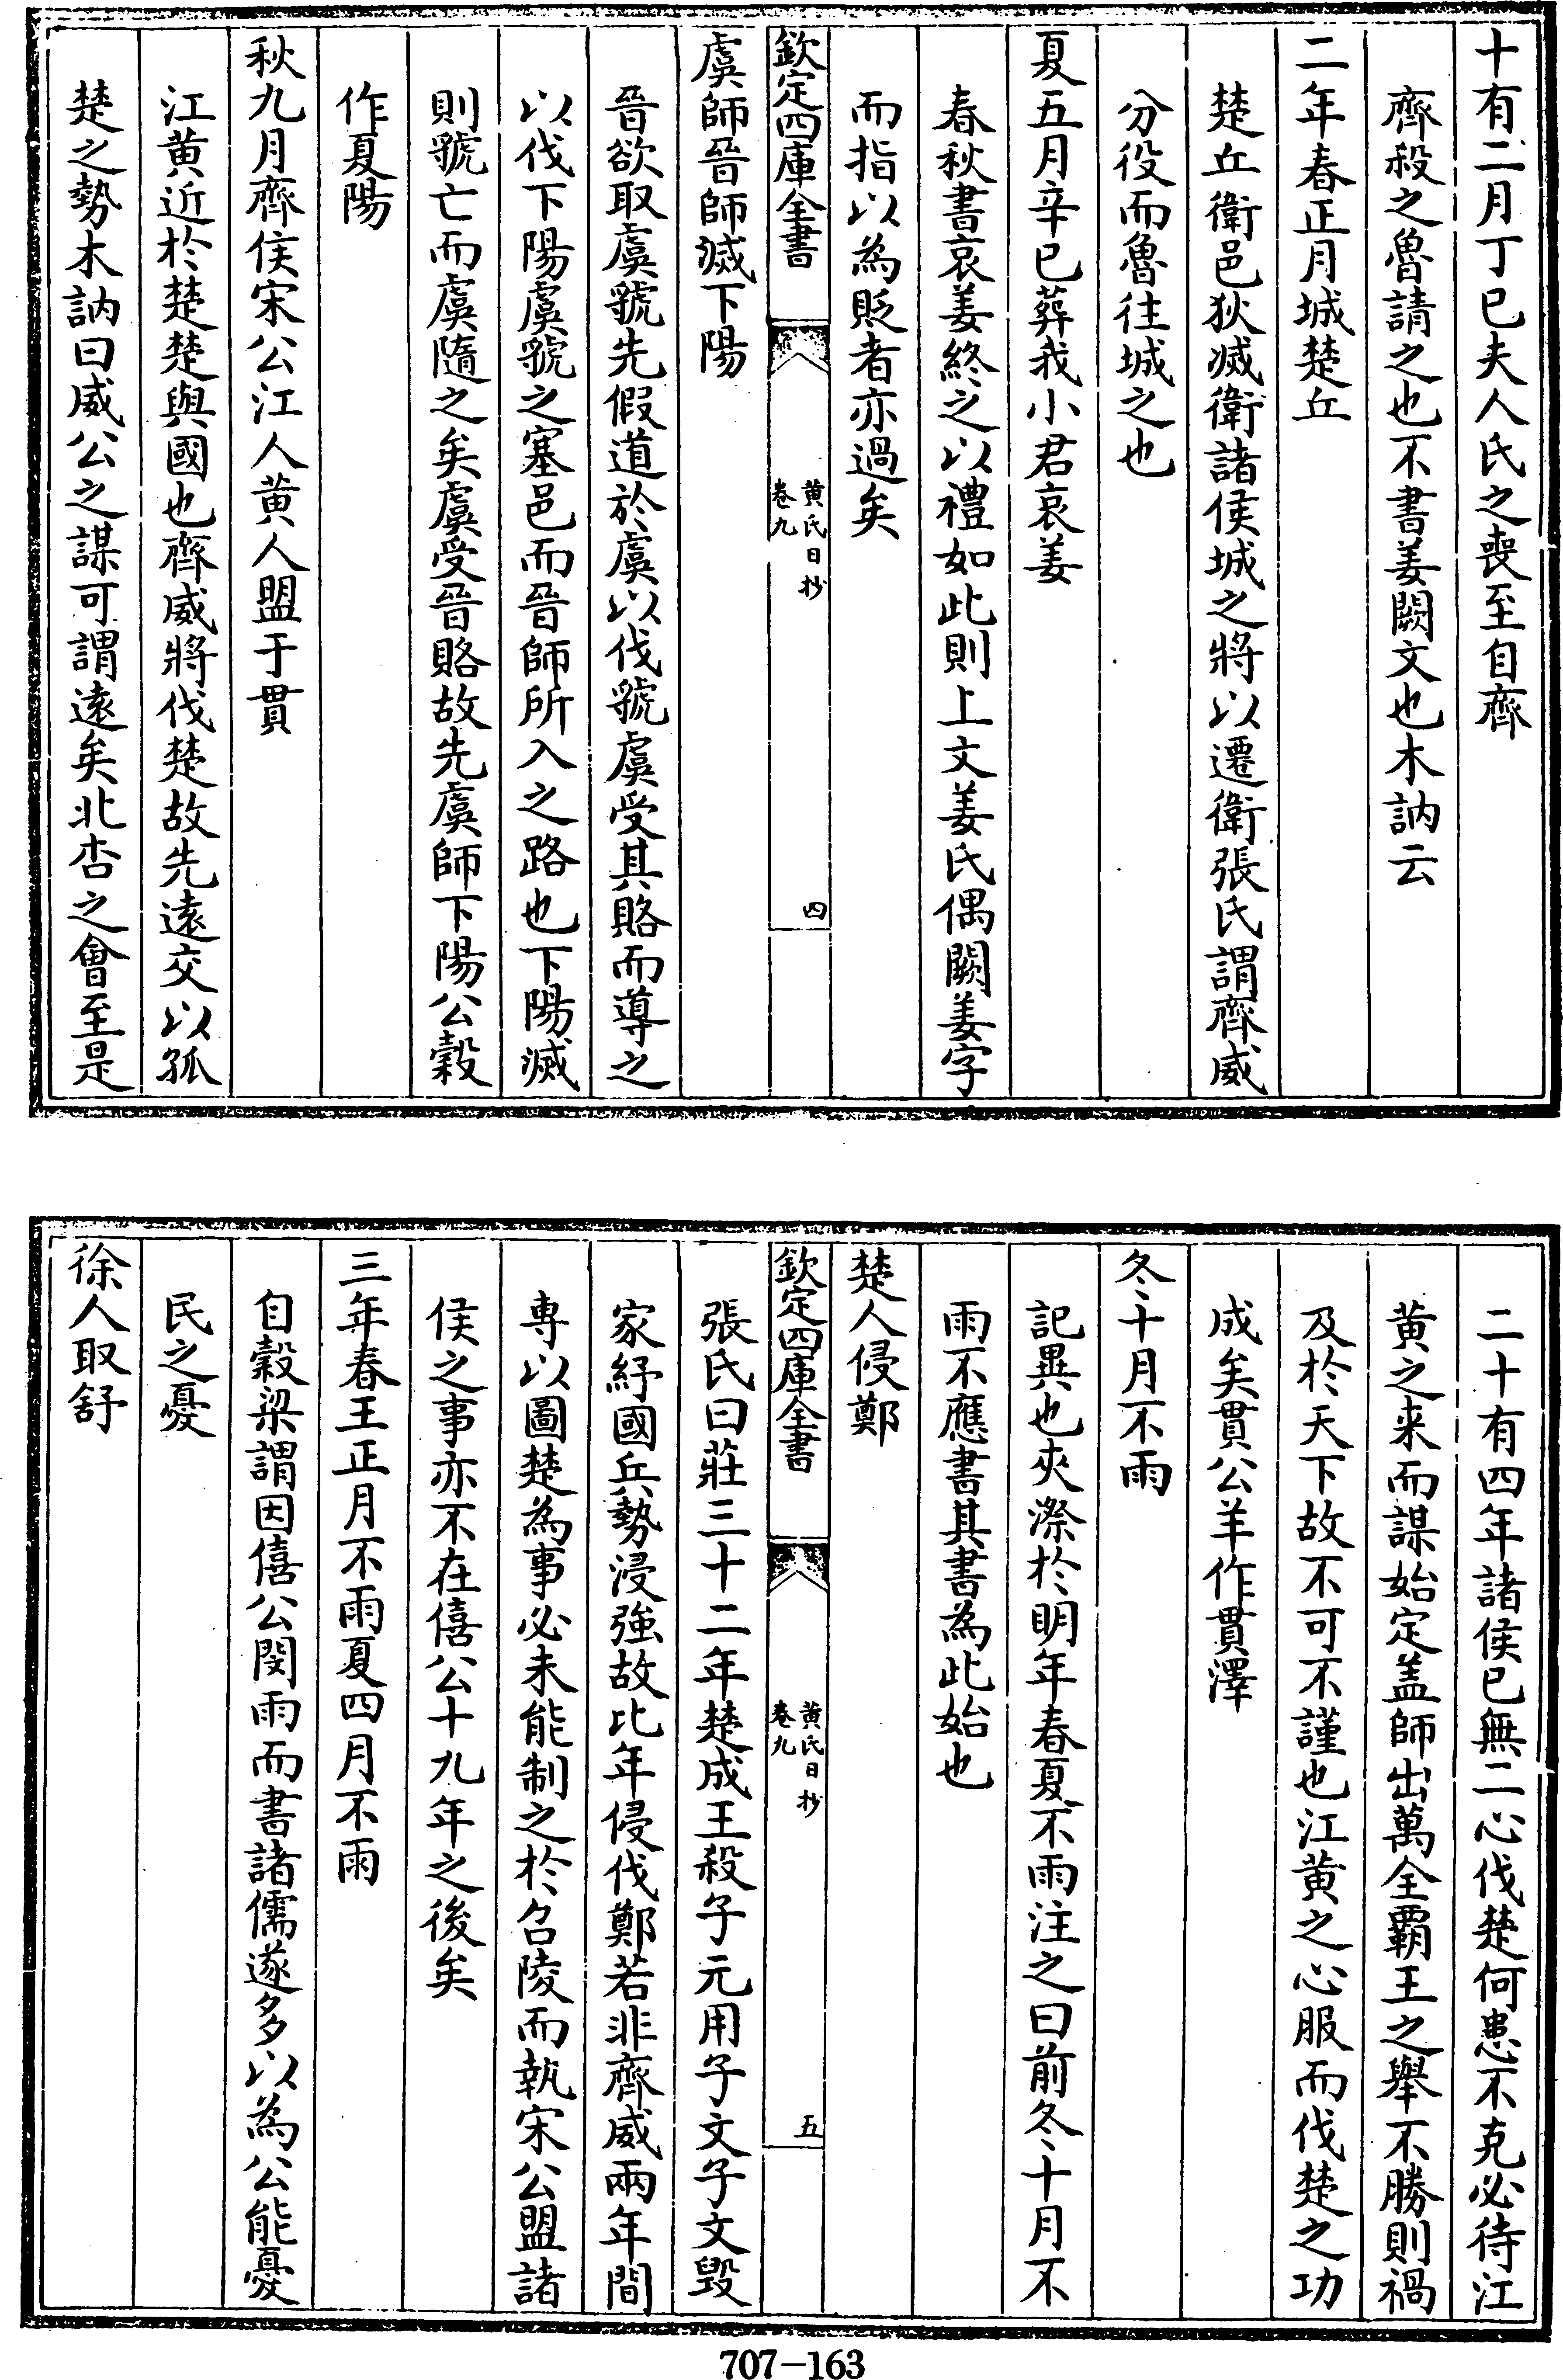 十有二月丁巳夫人氏之喪至自齊
齊殺之魯請之也不書姜闕文也木訥云
二年春正月城楚丘
楚丘衛邑狄滅衛諸侯城之將以遷衛張氏謂齊威
分役而魯往城之也
夏五月辛巳葬我小君哀姜
春秋書哀姜終之以禮如此則上文姜氏偶闕姜字
而指以為貶者亦過矣
欽定四庫全書
黄氏日抄
卷九
四
虞師晉師滅下陽
晉欲取虞虢先假道於虞以伐虢虞受其賂而導之
以伐下陽虞虢之塞邑而晉師所入之路也下陽滅
則虢亡而虞隨之矣虞受晉賂故先虞師下陽公穀
作夏陽
秋九月齊侯宋公江人黄人盟于貫
江黄近於楚楚與國也齊威將伐楚故先逺交以孤
楚之勢木訥曰威公之謀可謂逺矣北杏之會至是
二十有四年諸侯已無二心伐楚何患不克必待江
黄之来而謀始定盖師出萬全覇王之舉不勝則禍
及於天下故不可不謹也江黄之心服而伐楚之功
成矣貫公羊作貫澤
冬十月不雨
記異也夾漈於明年春夏不雨注之曰前冬十月不
雨不應書其書為此始也
楚人侵鄭
欽定四庫全書
黄氏日抄
卷九
五
張氏曰莊三十二年楚成王殺子元用子文子文毁
家紓國兵勢浸強故比年侵伐鄭若非齊威兩年間
専以圖楚為事必未能制之於召陵而執宋公盟諸
侯之事亦不在僖公十九年之後矣
三年春王正月不雨夏四月不雨
自穀梁謂因僖公閔雨而書諸儒遂多以為公能憂
民之憂
徐人取舒
707-163